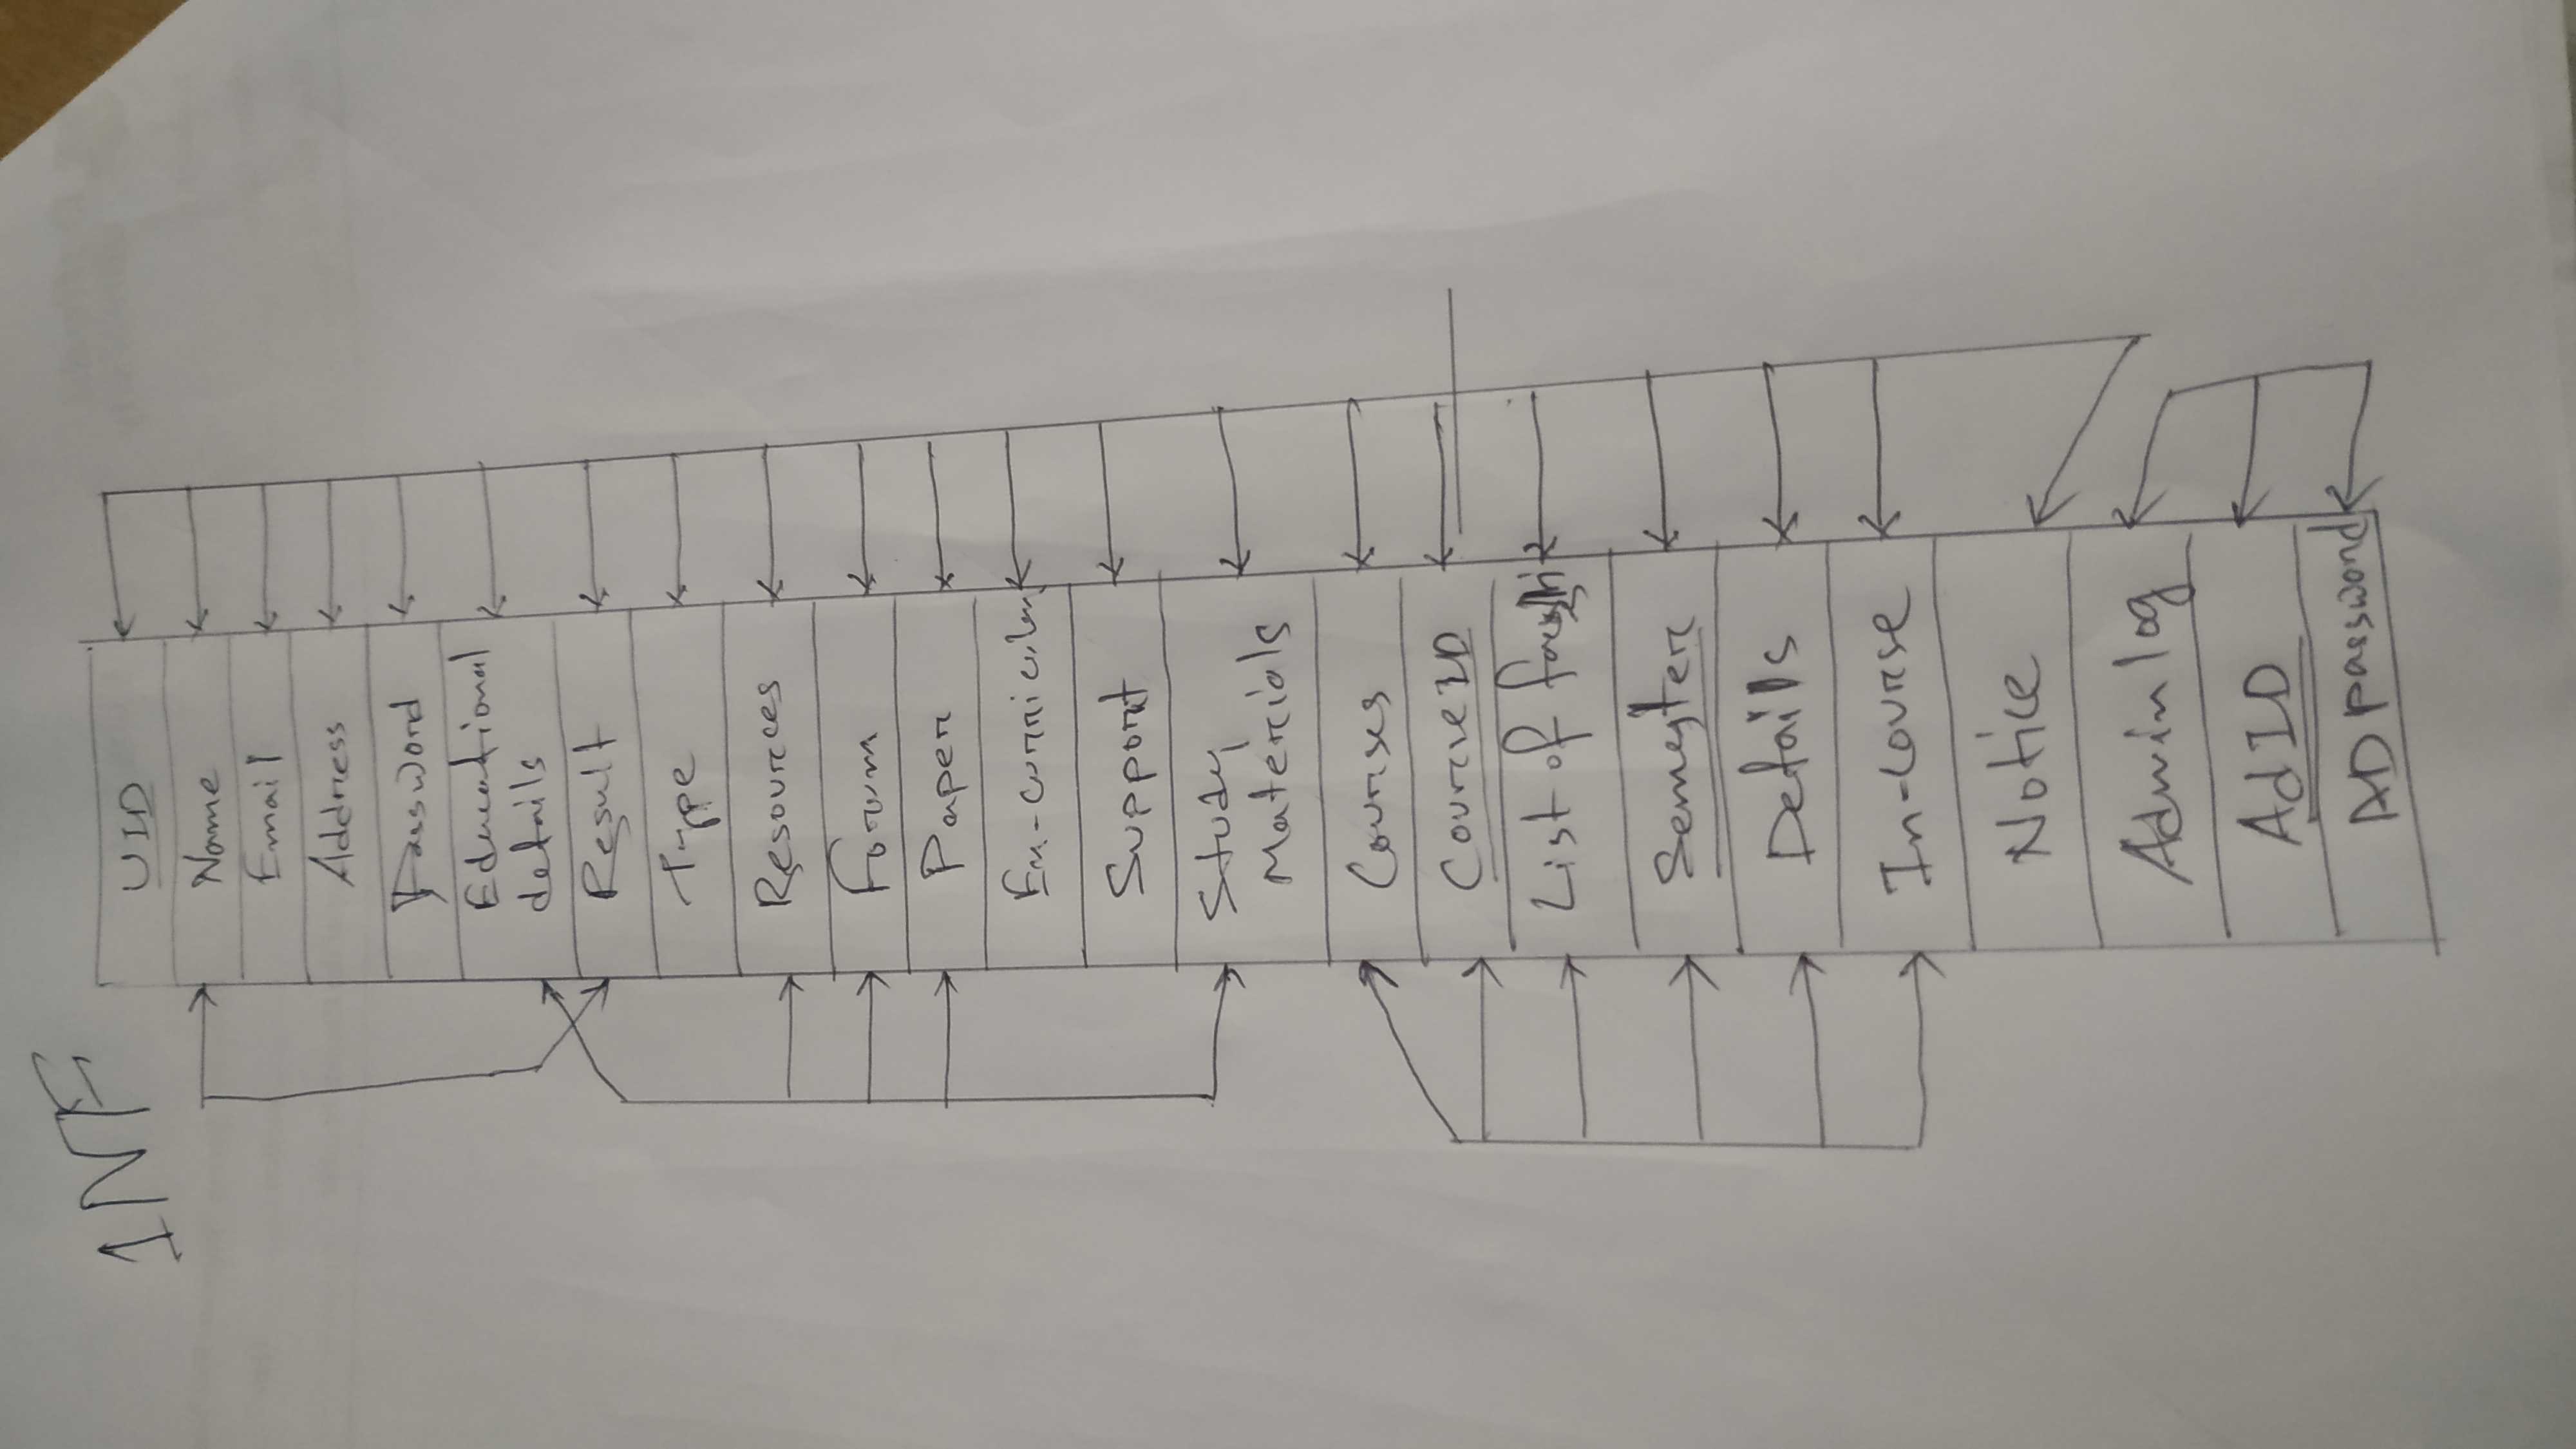 1NF
UID
Name
Email
Address
Password
Educational
details
Result
Type
Resources
Forum
Paper
Support
Study
Materials
Courses
CourseID
List of
Semester
Details
In-course
Notice
Admin log
AdID
AD password